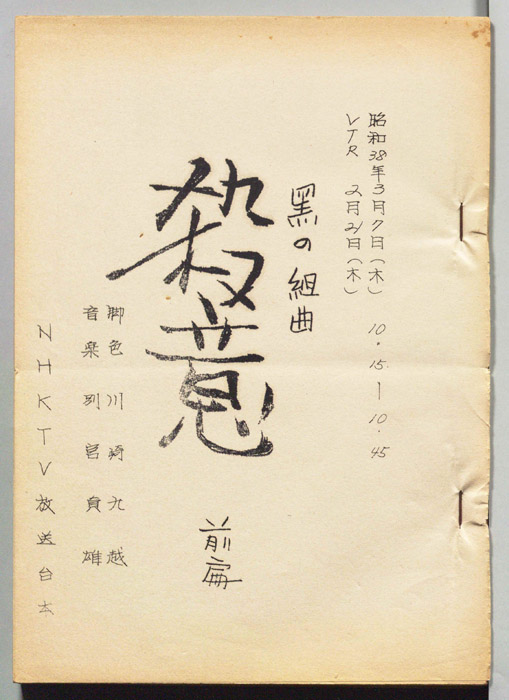 昭和38年3月7日(木) 10.15―10.45
VTR 2月21日(木)
黒の組曲
殺意
前扁
脚色 川崎九越
音楽 別宮貞雄
NHKTV放送台本